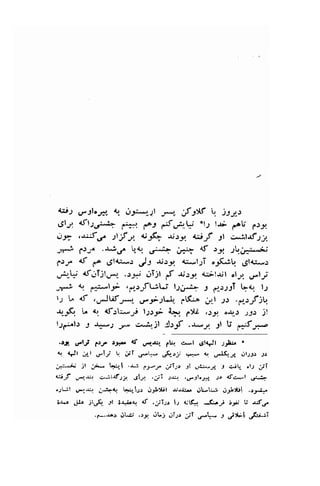 دیروز با گلاوکن پسر اریستون به پیرهاوس رفته
بودم تا هم خدا را* نیایش کنم و هم ببینم جشنی را که برای
بزرگداشت او گرفته بودند چگونه برگزار می‌کنند، چون
نخستین بار بود که چنین جشنی به پا می‌شد. هم مردم شهر
دسته‌ای باشکوه آراسته بودند ولی دسته‌ای هم که مردم
تراس براه انداخته بودند کم از آن نبود. پس از آنکه نیایش
را بجا آوردیم و جشن را تماشا کردیم، خواستیم به شهر
بازگردیم. در این هنگام پلمارخوس پسر کفالس، که ما را
از دور دیده بود، غلام خود را فرستاد که به ما بگوید
صبر کنیم تا او برسد. کودک از پشت سر رسید و دامنم را
* منظور الهه‌ای است بنام بندیس که معبود مردم تراس بود.
در دوران پریکلس به سبب نزدیکی سیاسی آتن با تراس این الهه به
آتن راه یافت و پرستش او در آتن مرسوم شد. اینجا سخن از نخستین
جشنی است که در پیرهاوس، بندر آتن، برای بزرگداشت بندیس گرفته
میشود. افلاطون شناسان معتقدند افلاطون در اینجا به جشن بندیس اشاره
می‌کند تا نفوذ فرهنگ بیگانه را در آتن، که بعقیده او یکی از علل عمده
آشفتگی اخلاقی و سیاسی آتن در آن زمان بود، نشان دهد.ـــم.